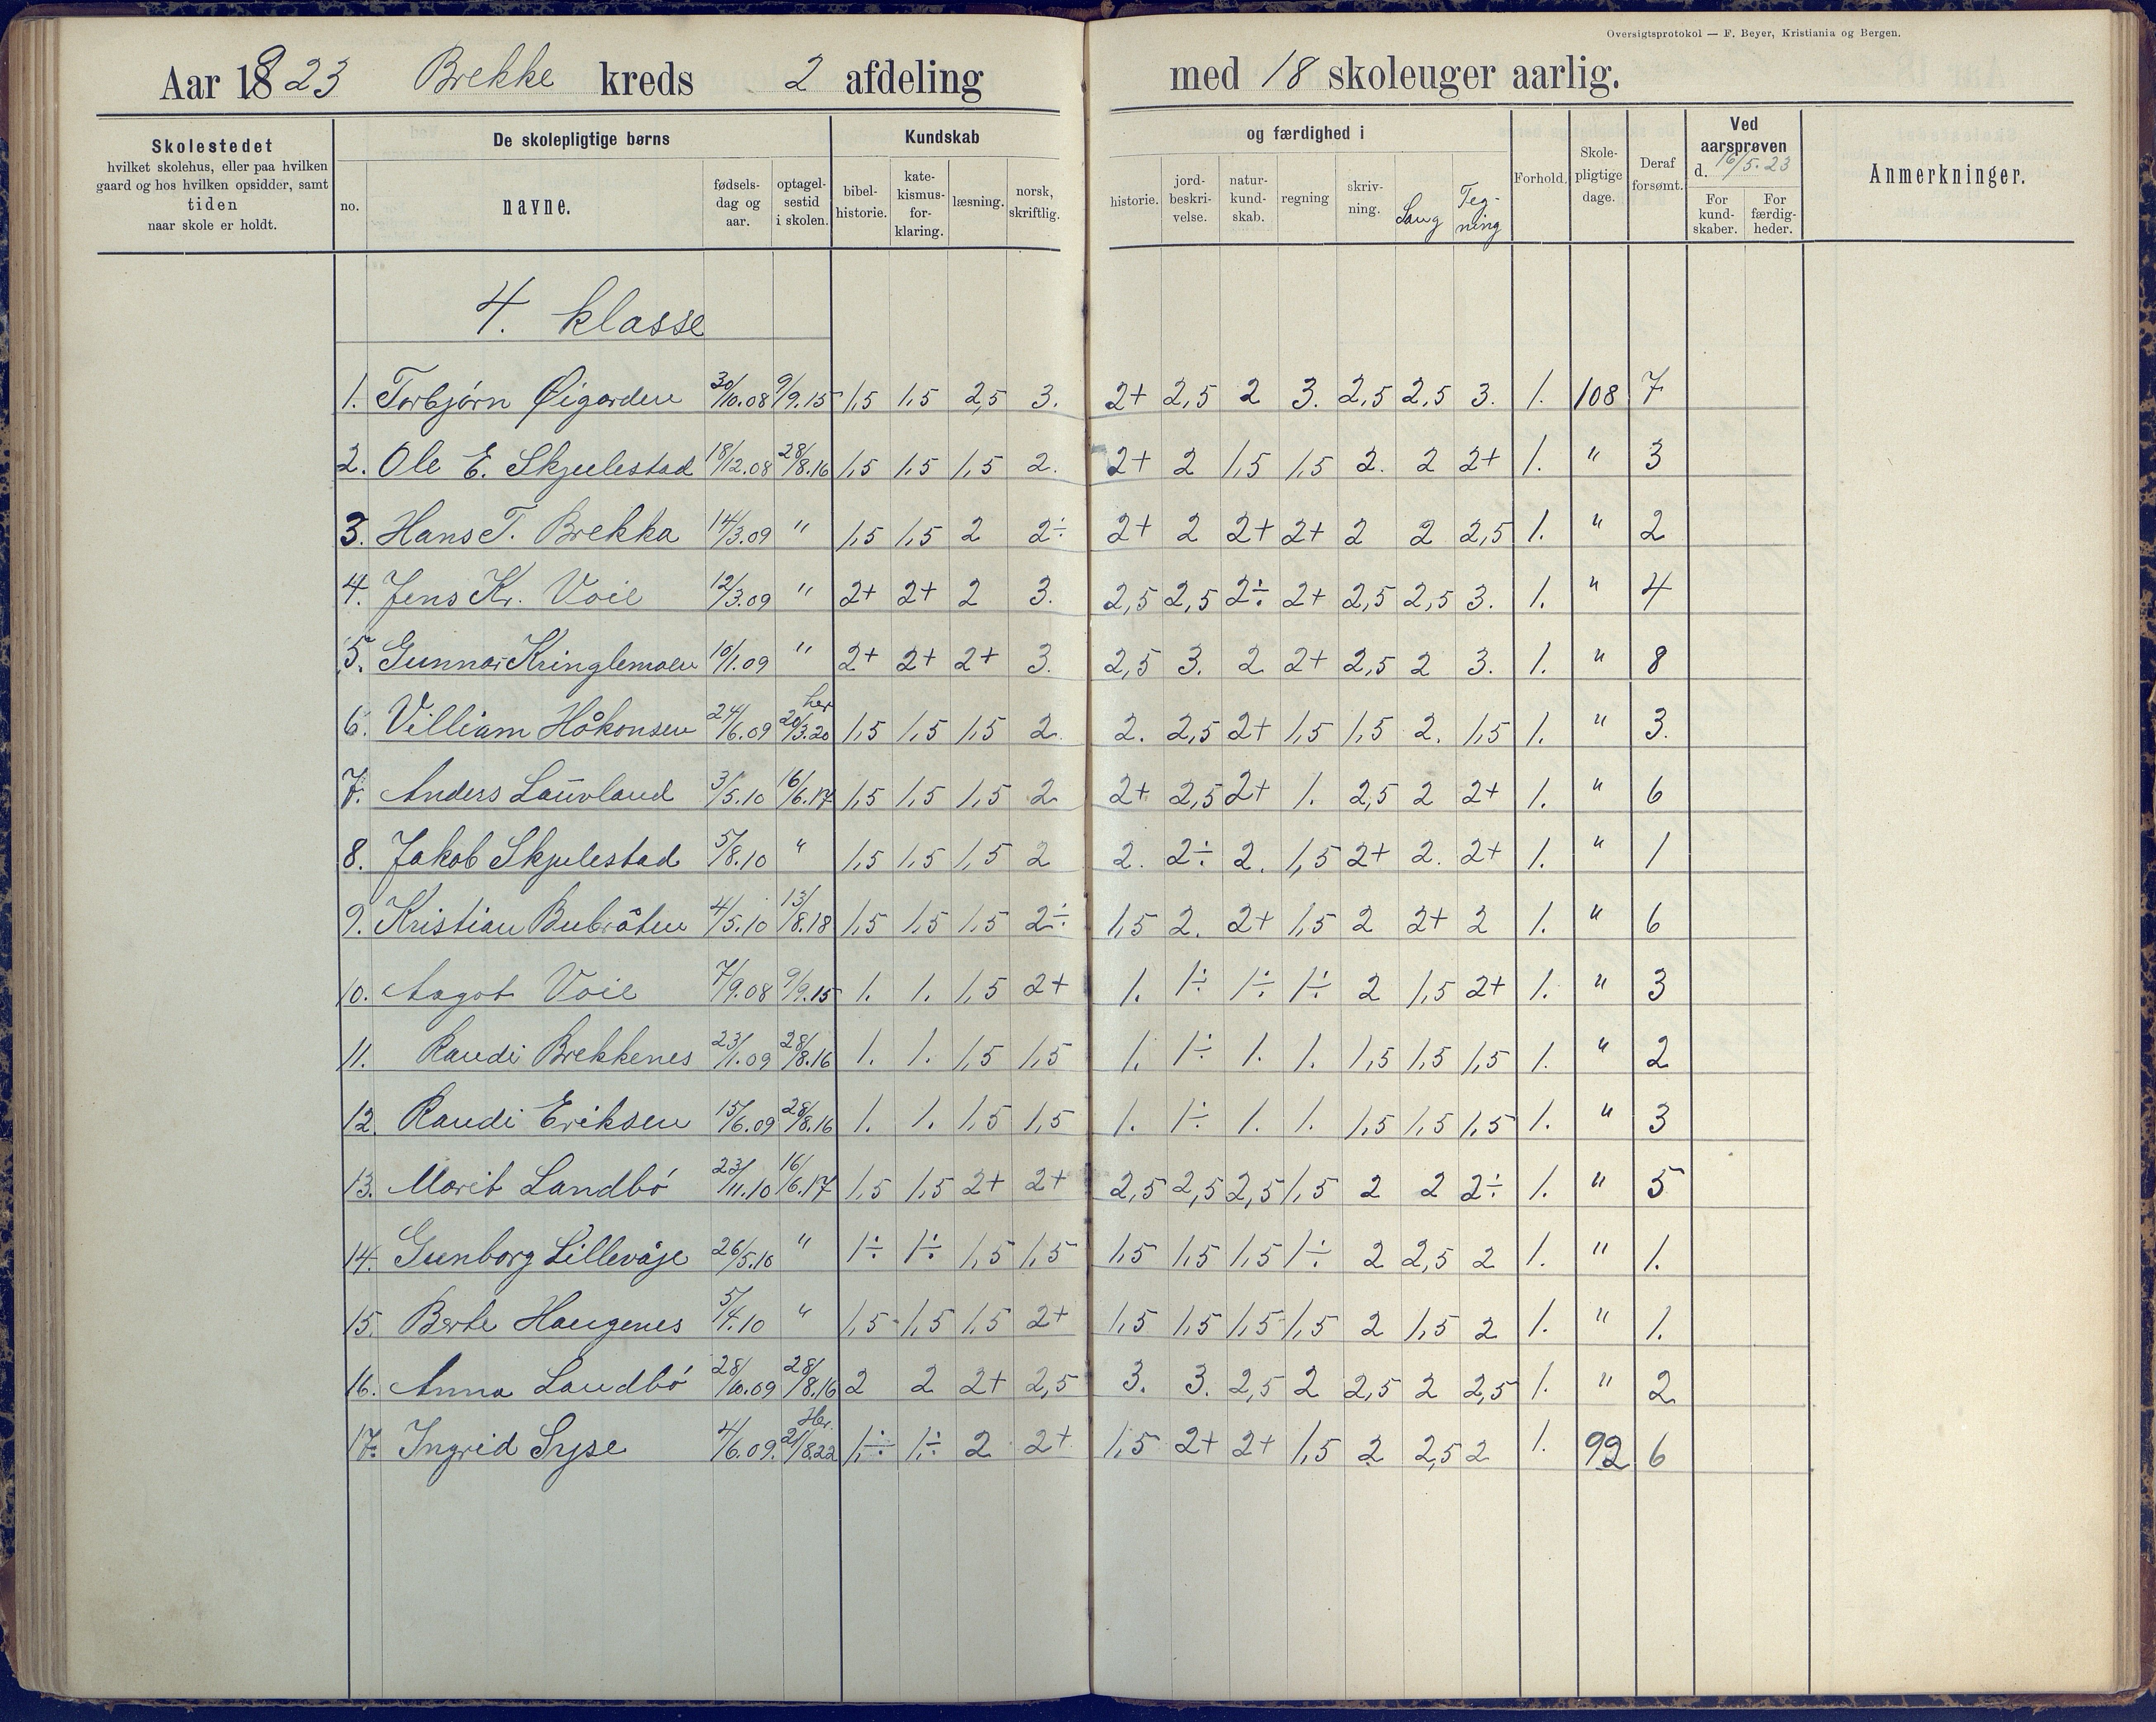 Oversigtsprotokol — F. Beyer, Kristiania og Bergen.
Aar 1923 Brekke kreds 2 afdeling med 18 skoleuger aarlig.
Skolestedet
hvilket skolehus, eller paa hvilken
gaard og hos hvilken opsidder, samt
tiden
naar skole er holdt.
De skolepligtige børns
no.
navne.
fødsels-
dag og
aar.
optagel-
sestid
i skolen.
Kundskab
bibel-
historie.
kate-
kismus-
for-
klaring.
læsning.
norsk,
skriftlig.
og færdighed i
historie.
jord-
beskri-
velse.
natur-
kund-
skab.
regning
skriv-
ning.
Sang
Teg-
ning
Forhold.
Skole-
pligtige
dage.
Deraf
forsømt.
Ved
aarsprøven
d. 16/5. 23
For
kund-
skaber.
For
færdig-
heder.
Anmerkninger.
4. klasse
1. Torbjørn Øigarden 30/10.08 9/9.15 1,5 1,5 2,5 3. 2+ 2,5 2 3. 2,5 2,5 3. 1. 108 7
2. Ole E. Skjulestad 18/12.08 28/8.16 1,5 1,5 1,5 2. 2+ 2 1,5 1,5 2. 2 2+ 1. " 3
3. Hans T. Brekka 14/3.09 " 1,5 1,5 2 2÷ 2+ 2 2+ 2+ 2 2 2,5 1. " 2
4. Jens Kr. Voie 12/3.09 " 2+ 2+ 2 3. 2,5 2,5 2÷ 2+ 2,5 2,5 3. 1. " 4
5. Gunnar Kringlemoen 10/1.09 " 2+ 2+ 2+ 3. 2,5 3. 2 2+ 2,5 2 3. 1. " 8
6. Villiam Håkonsen 24/6.09 her 20/3.20 1,5 1,5 1,5 2. 2. 2,5 2+ 1,5 1,5 2. 1,5 1. " 3.
7. Anders Lauvland 3/5.10 16/6.17 1,5 1,5 1,5 2 2+ 2,5 2+ 1. 2,5 2 2+ 1. " 6
8. Jakob Skjulestad 5/8.10 " 1,5 1,5 1,5 2 2. 2÷ 2. 1,5 2+ 2. 2+ 1. " 1
9. Kristian Bubråten 4/5.10 13/8.18 1,5 1,5 1,5 2÷ 1,5 2. 2+ 1,5 2 2+ 2 1. " 6
10. Aagot Voie 7/9.08 9/9.15 1. 1. 1,5 2+ 1. 1÷ 1÷ 1÷ 2 1,5 2+ 1. " 3
11. Randi Brekkenes 23/1.09 28/8.16 1. 1. 1,5 1,5 1. 1÷ 1. 1. 1,5 1,5 1,5 1. " 2
12. Randi Eriksen 15/6.09 28/8.16 1. 1. 1,5 1,5 1. 1÷ 1. 1. 1,5 1,5 1,5 1. " 3
13. Marit Landbó 23/11.10 16/6.17 1,5 1,5 2+ 2+ 2,5 2,5 2,5 1,5 2 2 2÷ 1. " 5
14. Gunborg Lillevåje 26/5.10 " 1÷ 1÷ 1,5 1,5 1,5 1,5 1,5 1÷ 2 2,5 2 1. " 1.
15. Berte Haugenes 5/4.10 " 1,5 1,5 1,5 2+ 1,5 1,5 1,5 1,5 2 1,5 2 1. " 1.
16. Anna Landbó 28/10.09 28/8.16 2 2 2+ 2,5 3. 3. 2,5 2 2,5 2 2,5 1. " 2
17. Ingrid Syse 4/6.09. Her 21/8.22 1÷ 1÷ 2 2+ 1,5 2+ 2+ 1,5 2 2,5 2 1. 92 6